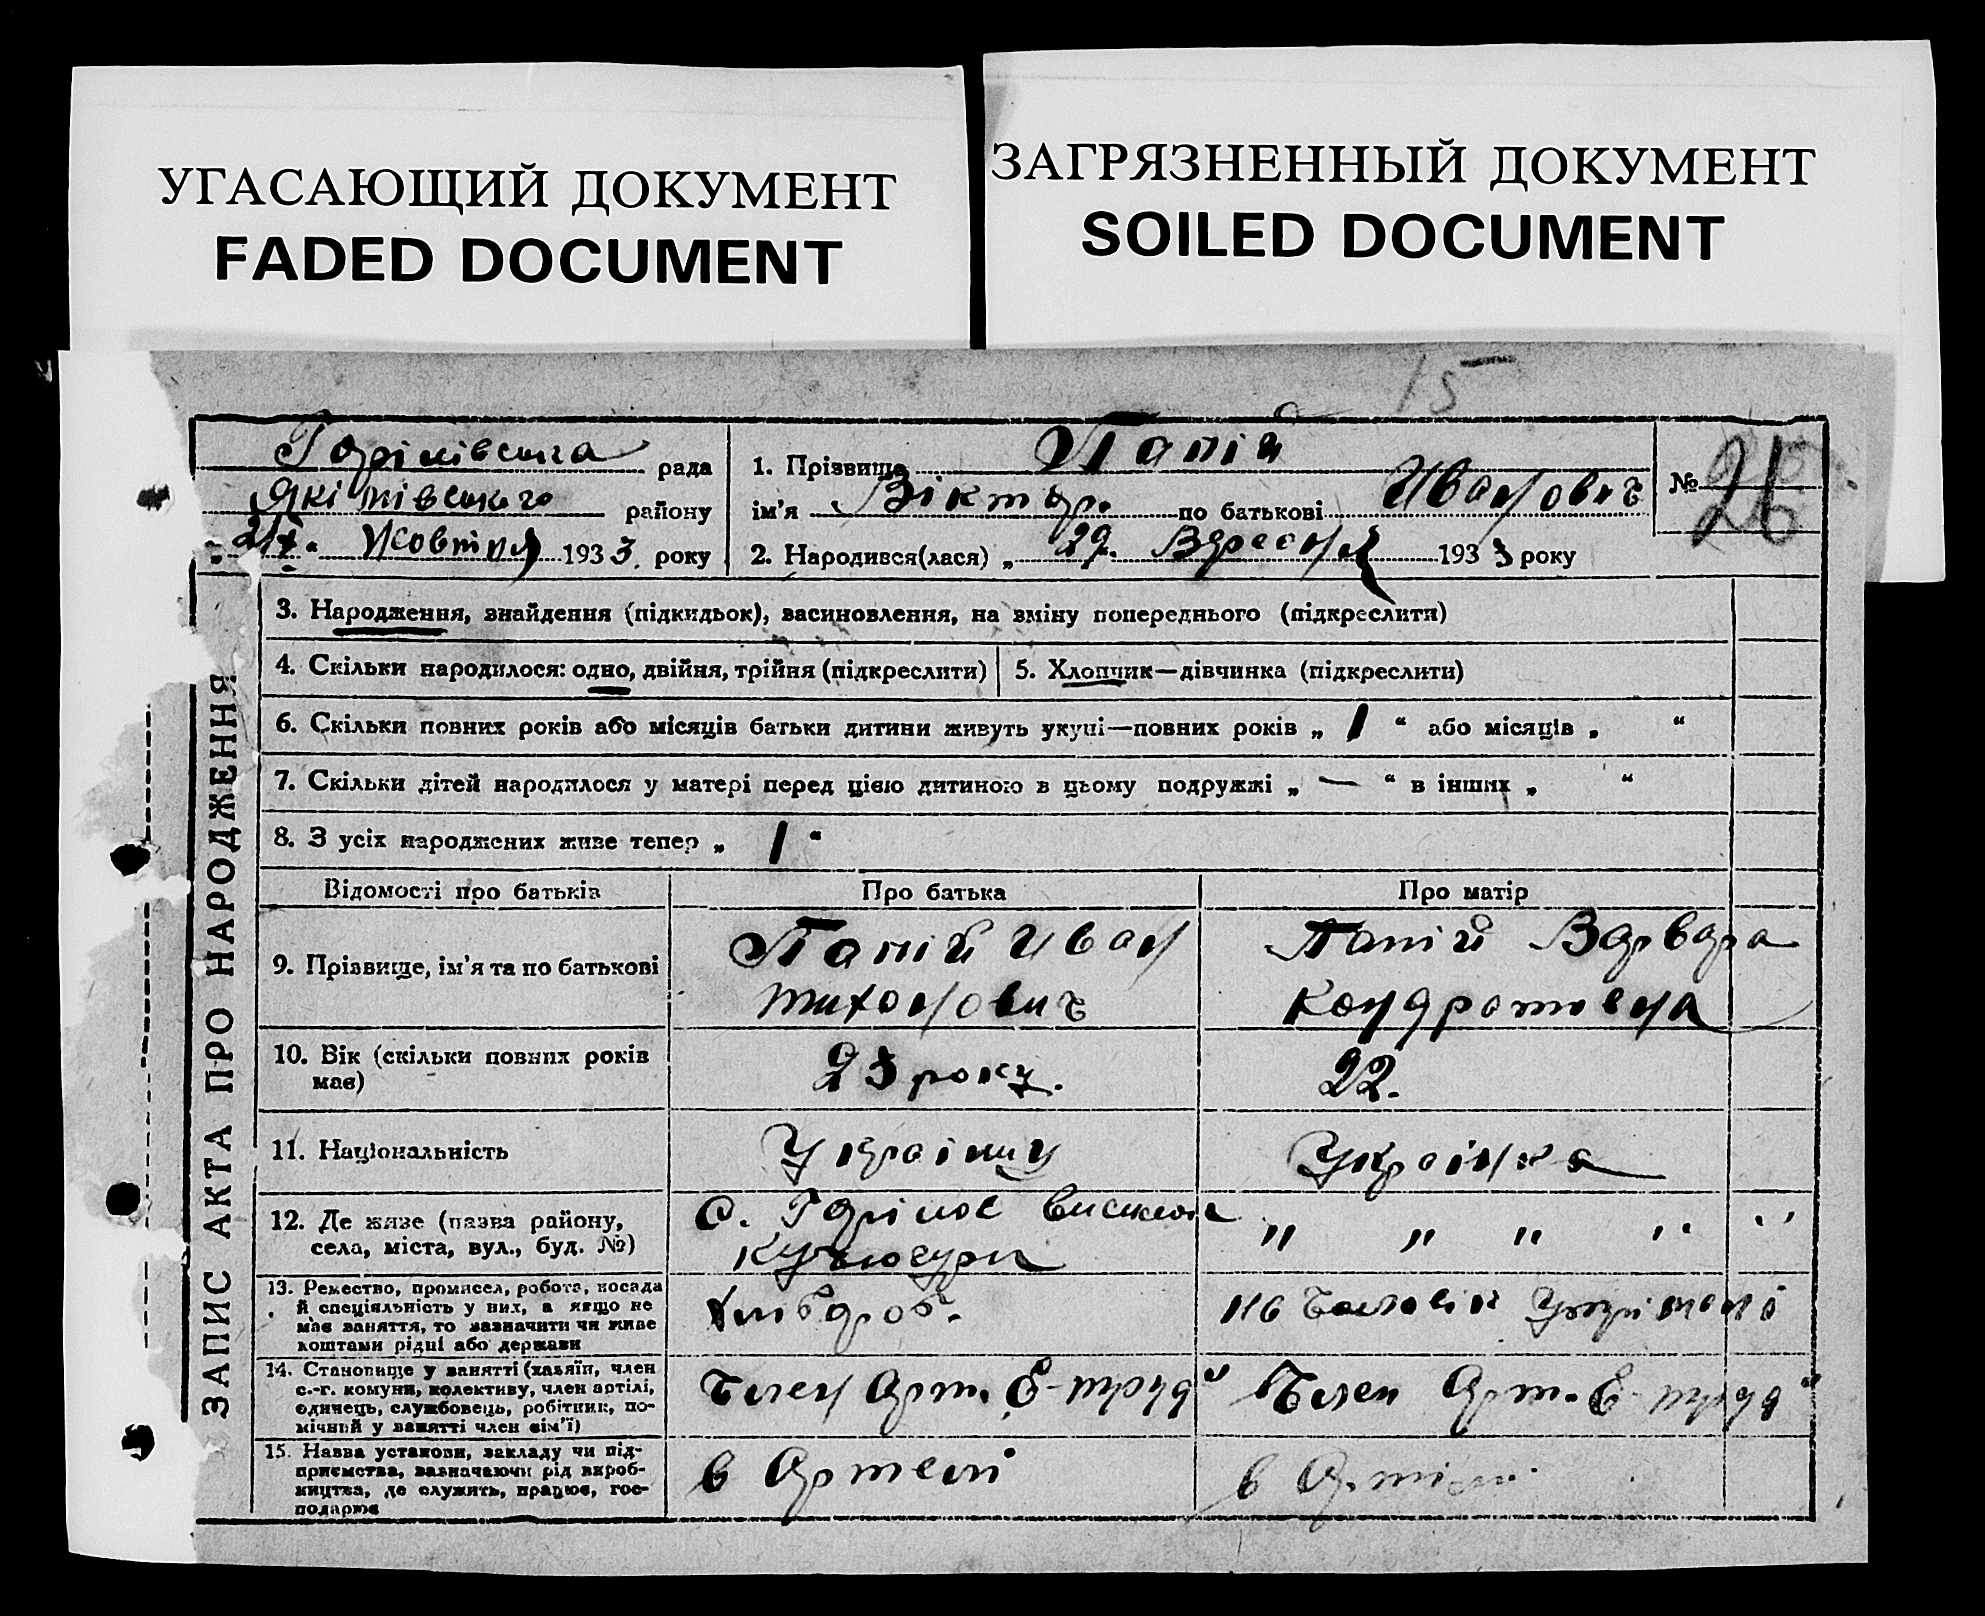 УГАСАЮЩИЙ ДОКУМЕНТ
FADED DOCUMENT
ЗАГРЯЗНЕННЫЙ ДОКУМЕНТ
SOILED DOCUMENT
15
рада
району
Жовтня 1933 року
1. Прізвище Папій
ім'я Віктор. по батькові Иванович
2. Народився(лася) „ 29. Вересня 1933 року
№ 26
ЗАПИС АКТА ПРО НАРОДЖЕННЯ
3. Народження, знайдення (підкидьок), засиновлення, на зміну попереднього (підкреслити)
4. Скільки народилося: одно, двійня, трійня (підкреслити)
5. Хлопчик—дівчинка (підкреслити)
6. Скільки повних років або місяців батьки дитини живуть укупі—повних років „ 1 “ або місяців „ “
7. Скільки дітей народилося у матері перед цією дитиною в цьому подружжі „ — “ в інших „ “
8. З усіх народжених живе тепер „ 1 “
Відомості про батьків
Про батька
Про матір
9. Прізвище, ім'я та по батькові
Папій Иван
Тихонович
Папій Варвара
Кондратовна
10. Вік (скільки повних років
має)
23 року.
22.
11. Національність
Українка
12. Де живе (назва району,
села, міста, вул., буд. №)
с.
" " " " "
13. Ремество, промисел, робота, посада
й спеціяльність у них, а якщо не
має заняття, то зазначити чи живе
коштами рідні або держави
Хлібороб.
14. Становище у занятті (хазяїн, член
с.-г. комуни, колективу, член артілі,
одинець, службовець, робітник, по-
мічний у занятті член сім'ї)
Член Арт.
Член Арт.
15. Назва установи, закладу чи під-
приємства, зазначаючи рід вироб-
ництва, де служить, працює, гос-
подарює
в Артелі
в